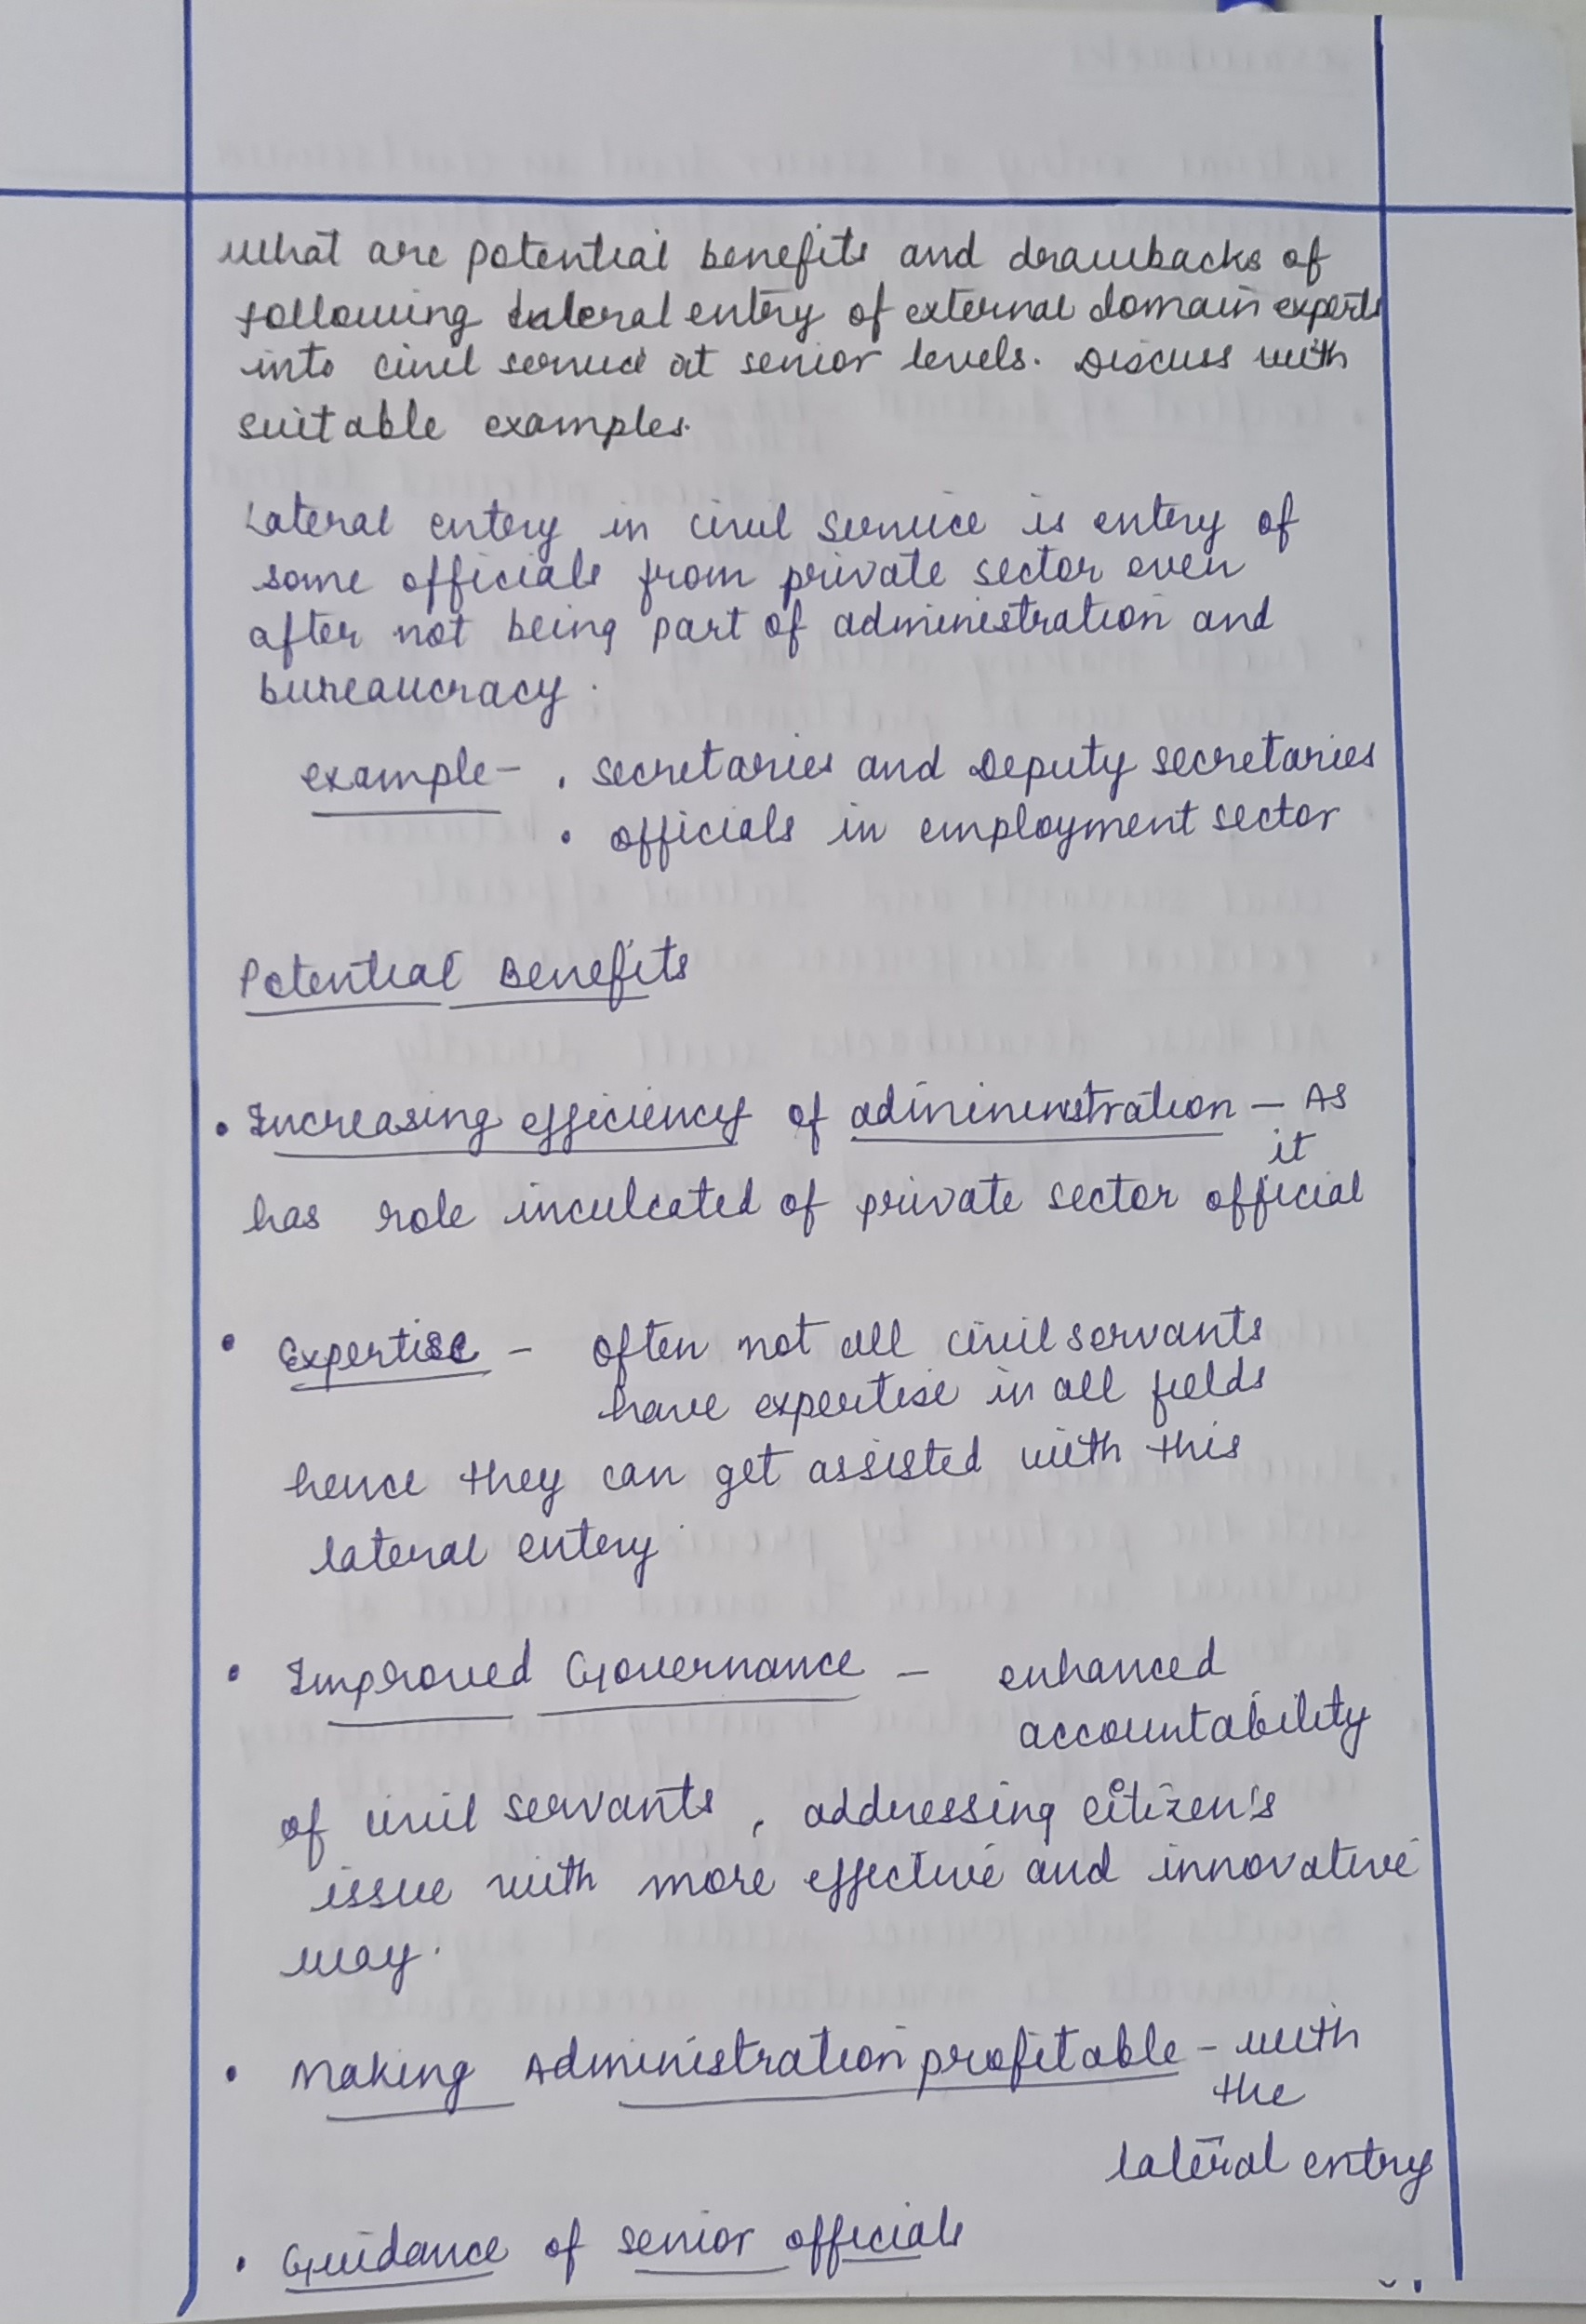 what are potential benefits and drawbacks of
following lateral entery of external domain experts
into civil service at senior levels. Discuss with
suitable examples.
Lateral entery in civil service is entery of
some officials from private sector even
after not being part of administration and
bureaucracy.
example- . secretaries and Deputy secretaries
• officials in employment sector
Potential Benefits
• Increasing efficiency of admininistration - As
it
has role inculcated of private sector official
• Expertise - often not all civil servants
have expertise in all fields
hence they can get assisted with this
lateral entery.
• Improved Governance - enhanced
accountability
of civil servants, addressing citizen's
issue with more effective and innovative
way.
• Making Administration profitable - with
the
lateral entry
• Guidance of senior officials